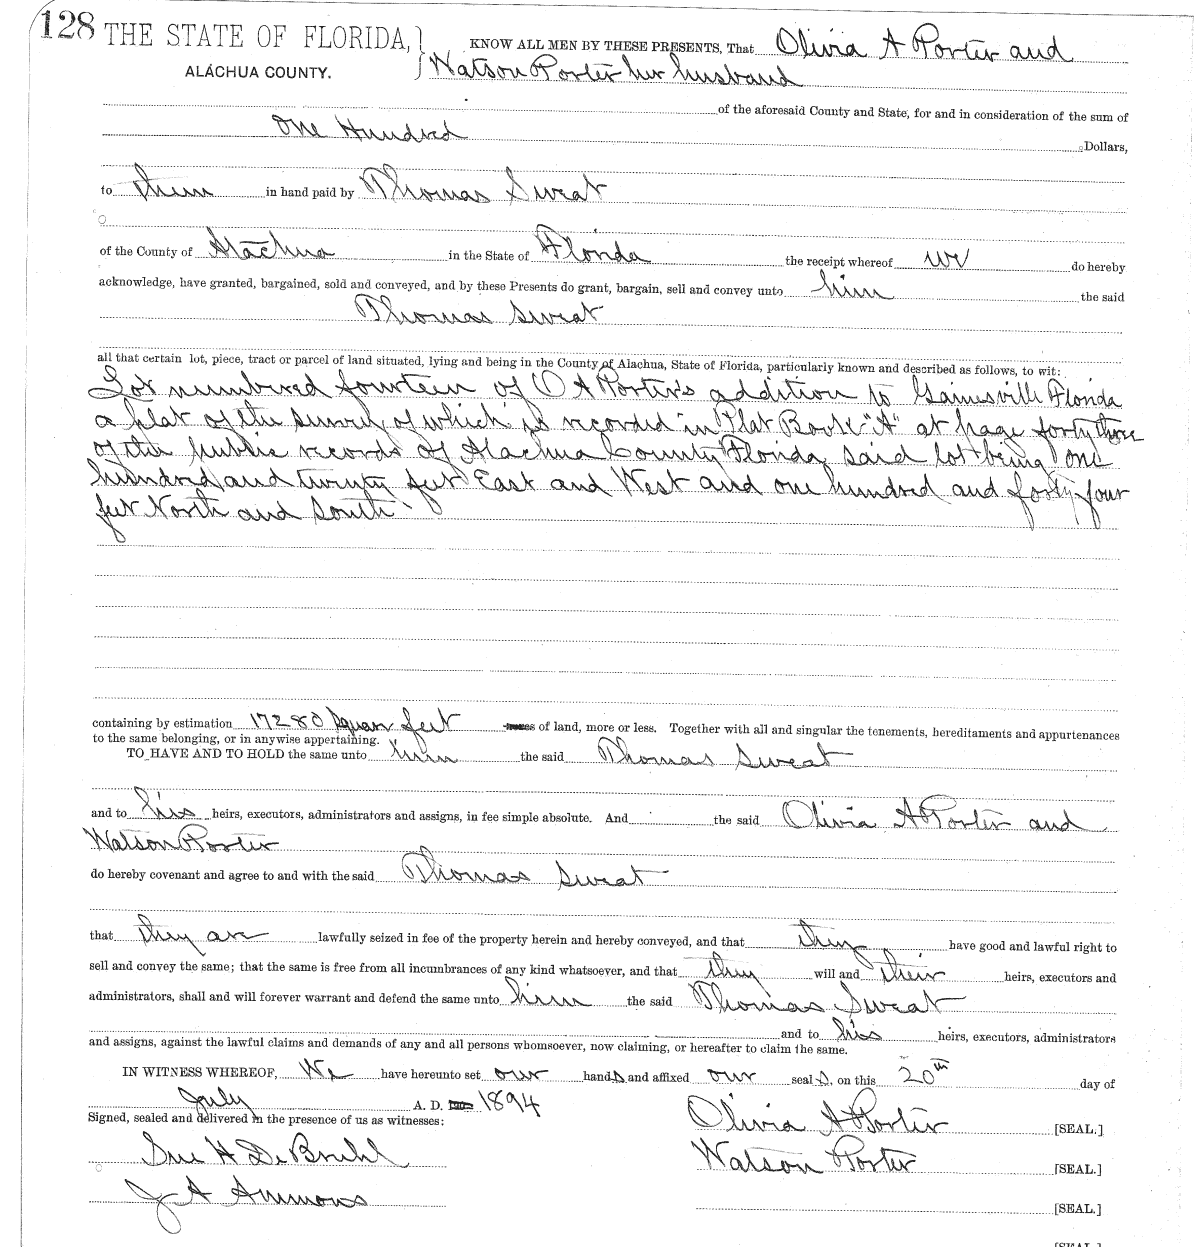 128 THE STATE OF FLORIDA, KNOW ALL MEN BY THESE PRESENTS, That Olivia A Porter and
ALACHUA COUNTY. Watson Porter her husband
of the aforesaid County and State, for and in consideration of the sum of
One Hundred Dollars,
to them in hand paid by Thomas Sweat
of the County of Alachua in the State of Florida the receipt whereof we do hereby
acknowledge, have granted, bargained, sold and conveyed, and by these Presents do grant, bargain, sell and convey unto him the said
Thomas Sweat
all that certain lot, piece, tract or parcel of land situated, lying and being in the County of Alachua, State of Florida, particularly known and described as follows, to wit:
Lot numbered fourteen of O A Porter's addition to Gainesville Florida
a plat of the survey of which is recorded in Plat Book "A" at page forty three
of the public records of Alachua County Florida, said lot being one
hundred and twenty feet East and West and one hundred and forty-four
feet North and South.
containing by estimation 17280 square feet of land, more or less. Together with all and singular the tenements, hereditaments and appurtenances
to the same belonging, or in anywise appertaining.
TO HAVE AND TO HOLD the same unto him the said Thomas Sweat
and to his heirs, executors, administrators and assigns, in fee simple absolute. And the said Olivia A Porter and
Watson Porter
do hereby covenant and agree to and with the said Thomas Sweat
that they are lawfully seized in fee of the property herein and hereby conveyed, and that they have good and lawful right to
sell and convey the same; that the same is free from all incumbrances of any kind whatsoever, and that they will and their heirs, executors and
administrators, shall and will forever warrant and defend the same unto him the said Thomas Sweat
and to his heirs, executors, administrators
and assigns, against the lawful claims and demands of any and all persons whomsoever, now claiming, or hereafter to claim the same.
IN WITNESS WHEREOF, We have hereunto set our hands and affixed our seals, on this 20th day of
July A. D. 1894
Signed, sealed and delivered in the presence of us as witnesses: Olivia A Porter [SEAL.]
Sue H DeBruhl Watson Porter [SEAL.]
J A Ammons [SEAL.]